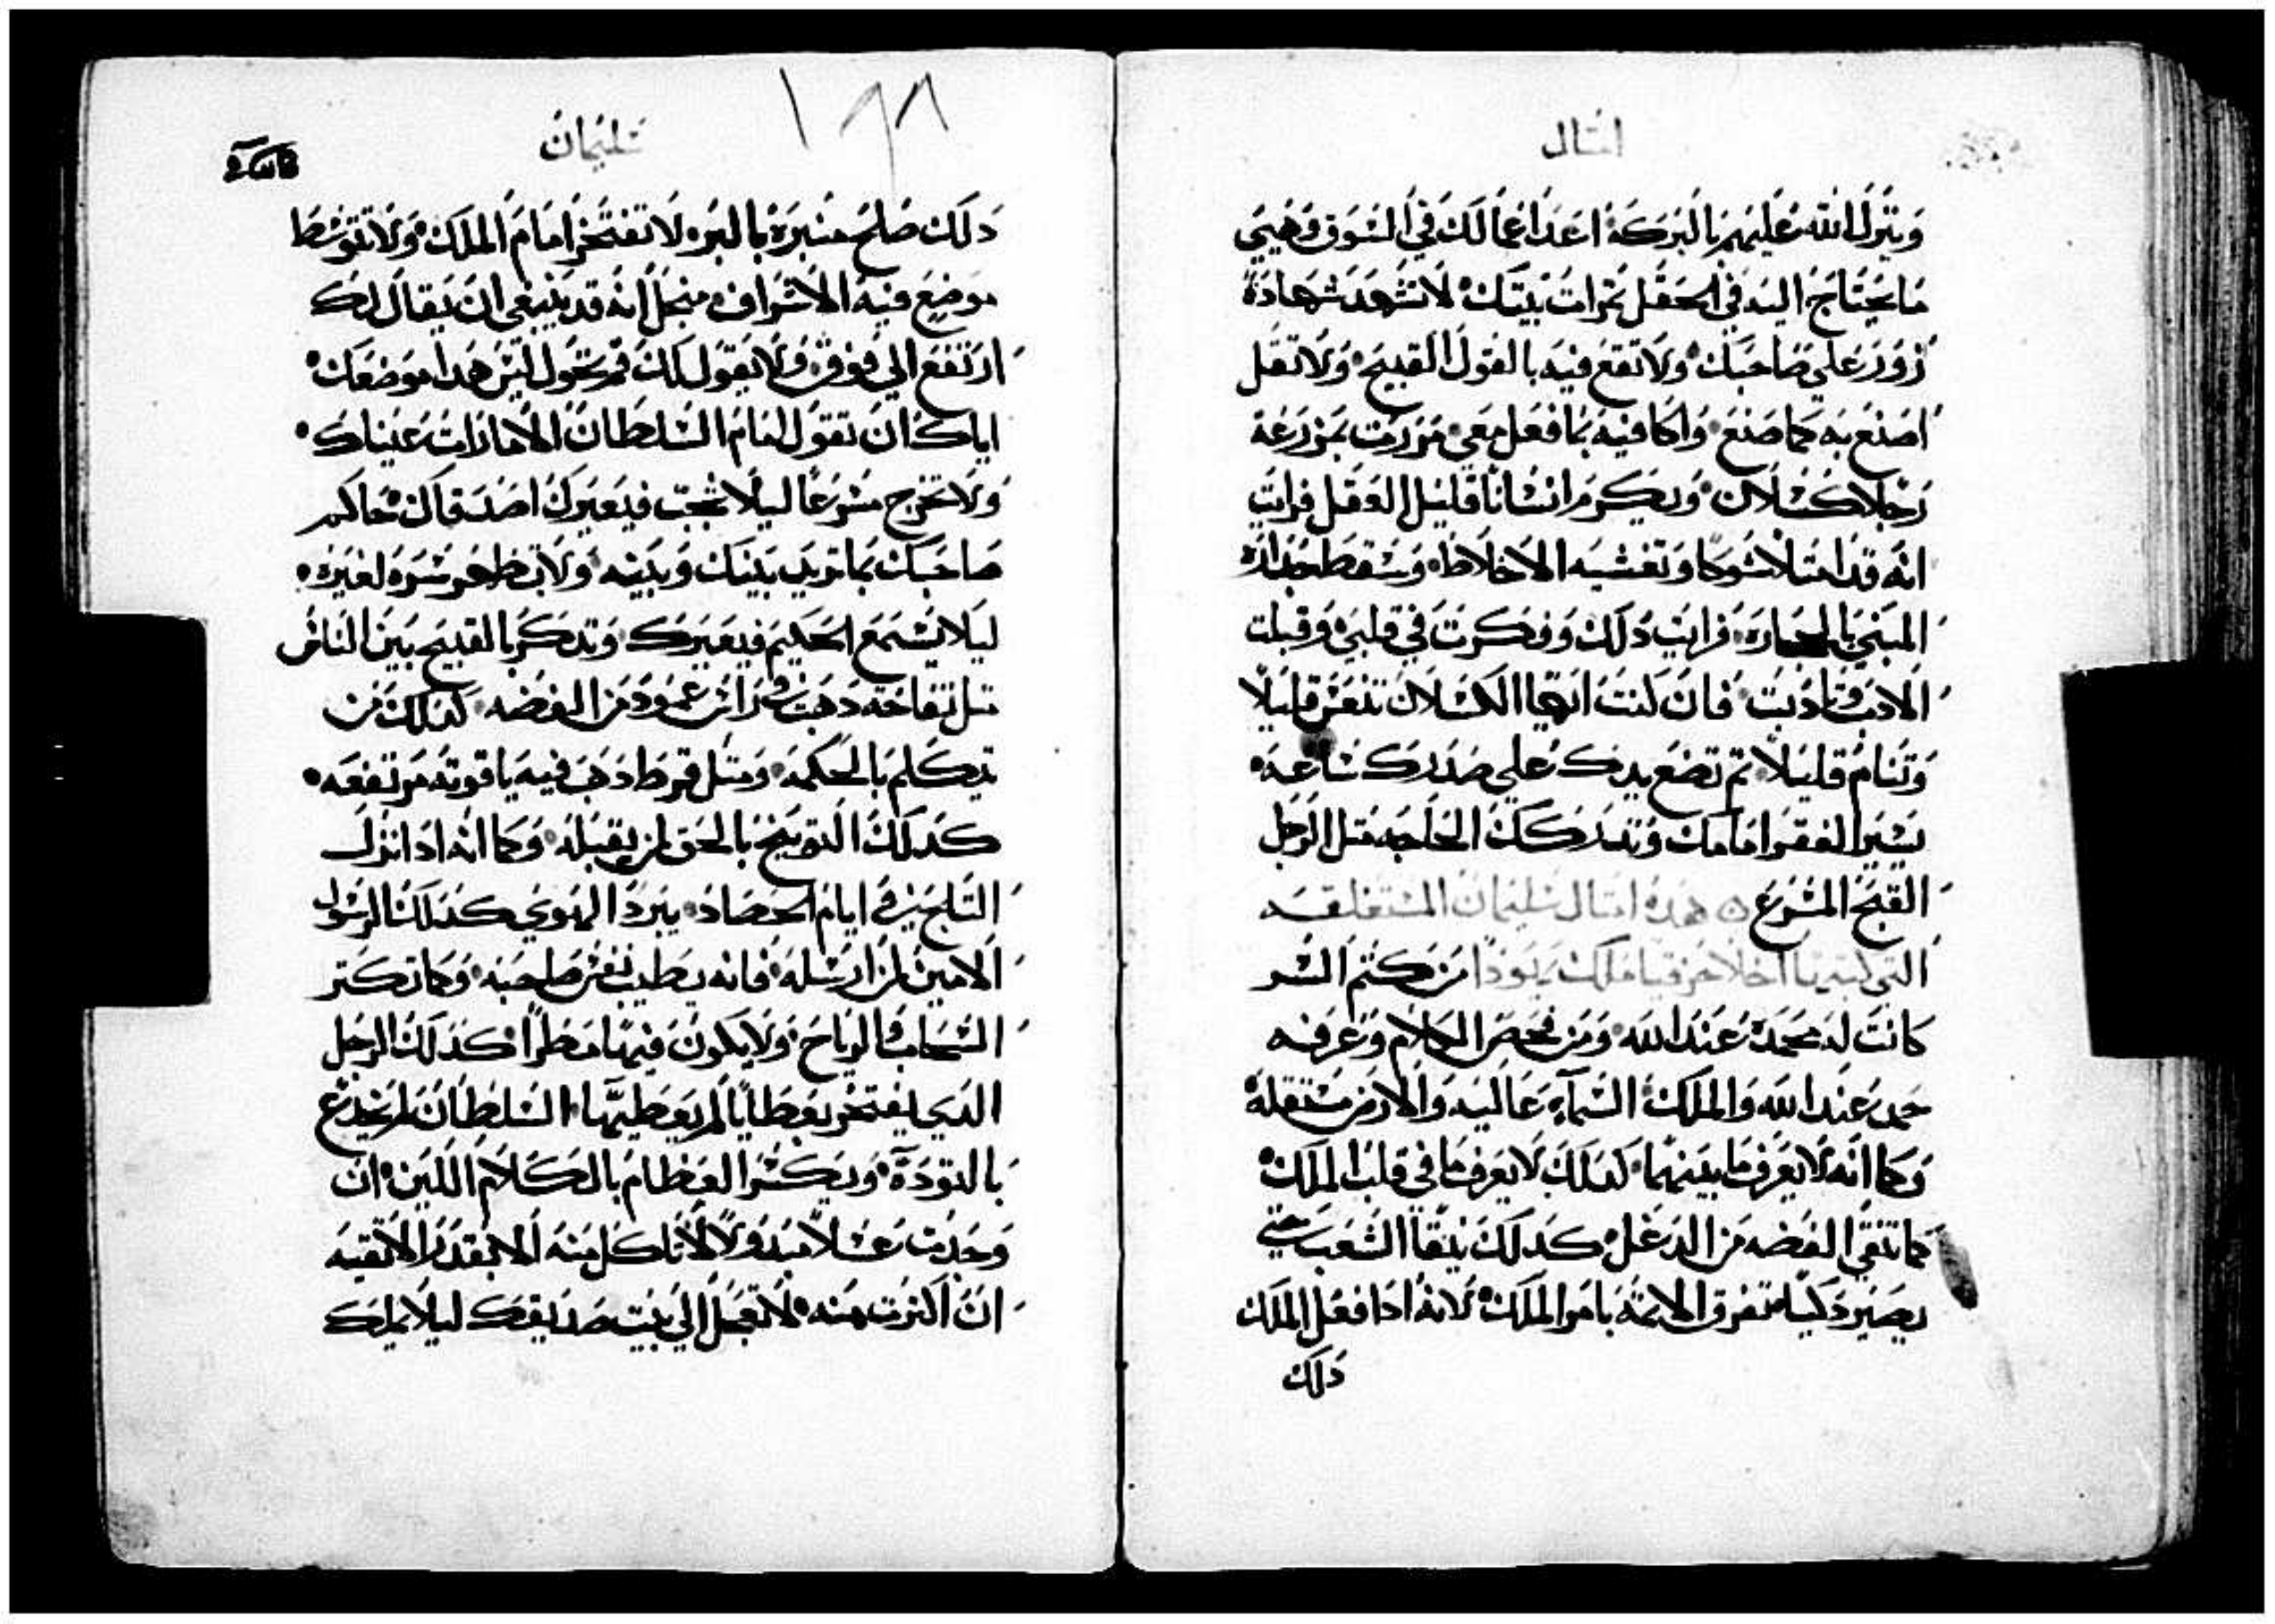 امثال
وينزل الله عليهم بالبركة اعد اعمالك في السوق وهيي
ما يحتاج اليه في الحقل تم ات بيتك لا تشهد شهادة
زور علي صاحبك ولا تقع فيه بالقول القبيح ولا تقل
اصنع به كما صنع واكافيه بما فعل معي مررت بمزرعة
رجلا كسلان وبكرم انسانا قليل العقل فرايت
انه قد امتلا شوكا وتغشيه الاخلاط وسقط جداره
المبني بالحجاره فرايت دلك وفكرت في قلبي وقبلت
الادب وتادبت فان كنت ايها الكسلان تنعس قليلا
وتنام قليلا تم تضع يدك علي صدرك ساعه
يسير الفقر امامك وتدركك الحاجه متل الرجل
القبح المسرع هده امتال سليمان المستغلقه
التي كتبها اخلا حزقيا ملك يهودا من كتم السر
كانت له محمدة عند الله ومن فحص الكلام وعرفه
حمد عند الله والملك السماء عاليه والارض مستفله
وكما انه لا يعرف ما بينهما كدلك لا يعرف ما في قلب الملك
كما تنقي الفضه من الدغل كدلك ينقا الشعب حتي
يصير دكيا تتفرق الايمة بامر الملك لانه ادا فعل الملك
دلك
سليمان
١٩٨
دلك صلح منبره بالبر لا تفتخر امام الملك ولا تتوسط
موضع فيه الاشراف منجل انه قد ينبغي ان يقال لك
ارتفع الي فوق ولا يقول لك قم تحول ليس هدا موضعك
اياك ان تقول امام السلطان الا ما رات عيناك
ولا تخرج مسرعا ليلا تجب فيعيرك اصدقاك حاكم
صاحبك بما تريد بينك وبينه ولا تظهر سره لغيره
ليلا يسمع الحكيم فيعيرك وتدكر بالقبيح بين الناس
متل تفاحة دهب في راس عمود من الفضه كدلك من
يتكلم بالحكمه ومتل قرط دهب فيه ياقوته مرتفعه
كدلك التوبيخ بالحق لمن يقبله وكما انه ادا نزل
التلج في ايام الحصاد يبرد الهوي كدلك الرسول
الامين لمن ارسله فانه يطيب نفس صاحبه وكما تكتر
السحاب والرياح ولا يكون فيها مطرا كدلك الرجل
الدي يفتخر بعطايا لم يعطيها السلطان لم يخدع
بالتودة ويكسر العظام بالكلام اللين ان
وجدت عسلا مبدولا لا تاكل منه الا بقدر لا تقيه
ان اكترت منه لا تعجل الي بيت صديقك ليلا يملك